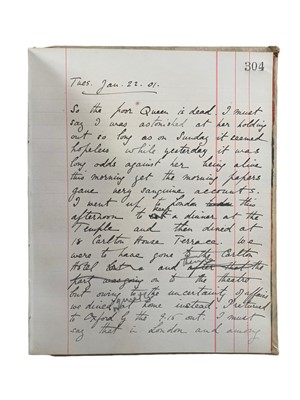 304
Tues. Jan. 22. 01.
So the poor Queen is dead. I must
say I was astonished at her holding
out so long as on Sunday it seemed
hopeless while yesterday it was
long odds against her being alive
this morning yet the morning papers
gave very sanguine accounts.
I went up to London this
afternoon to a dinner at the
Temple and then dined at
18 Carlton House Terrace. We
were to have gone to the Carlton
Hotel and
on to the theatre
but owing to the uncertainty of affairs
we dined at home instead. I returned
to Oxford by the 9.15 out. I must
say that in London and among